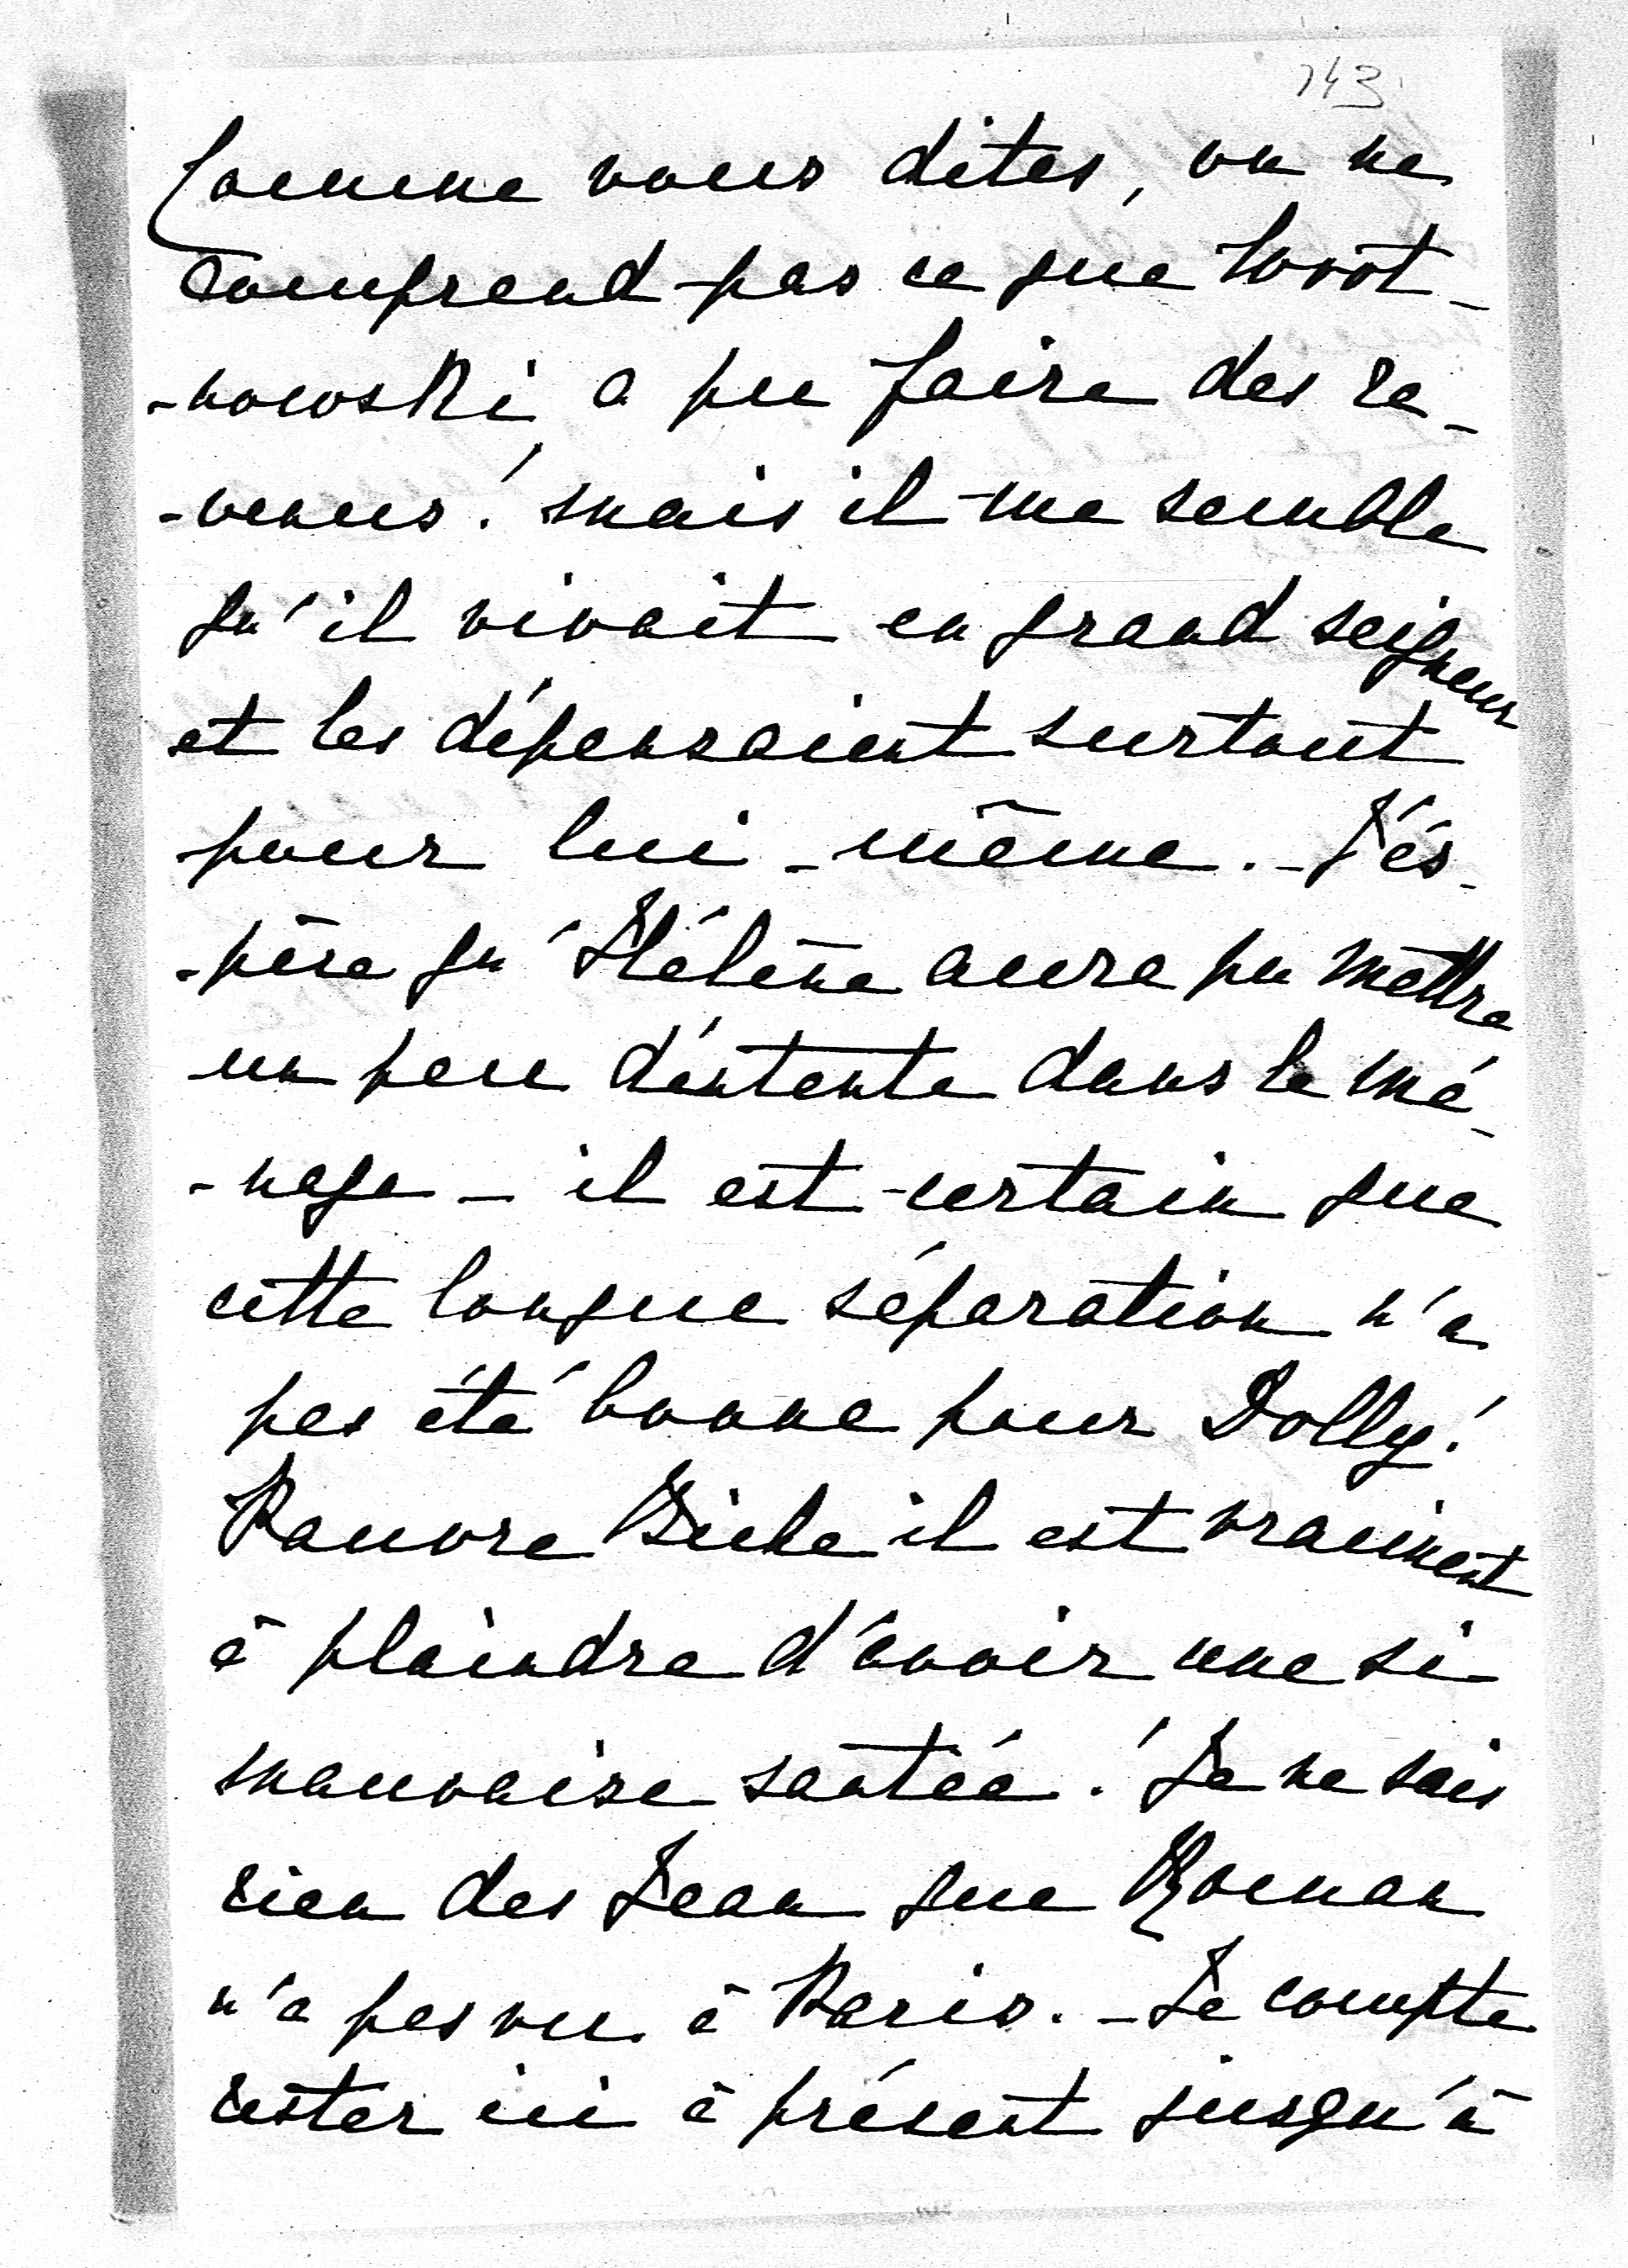 143
Comme vous dites, on ne
comprend pas ce que Wrot-
-nowski, a pu faire des re-
-venus! mais il me semble
qu'il vivait en grand seigneur
et les dépensaient surtout
pour lui-même. - J'és-
-père qu'Hélène aura pu mettre
un peu d'entente dans le mé-
-nage - il est certain que
cette longue séparation n'a
pas été bonne pour Dolly!
Pauvre Biche il est vraiment
à plaindre d'avoir une si
mauvaise santée! Je ne sais
rien des Jean que Roman
n'a pas vu à Paris. - Je compte
rester ici à présent jusqu'à